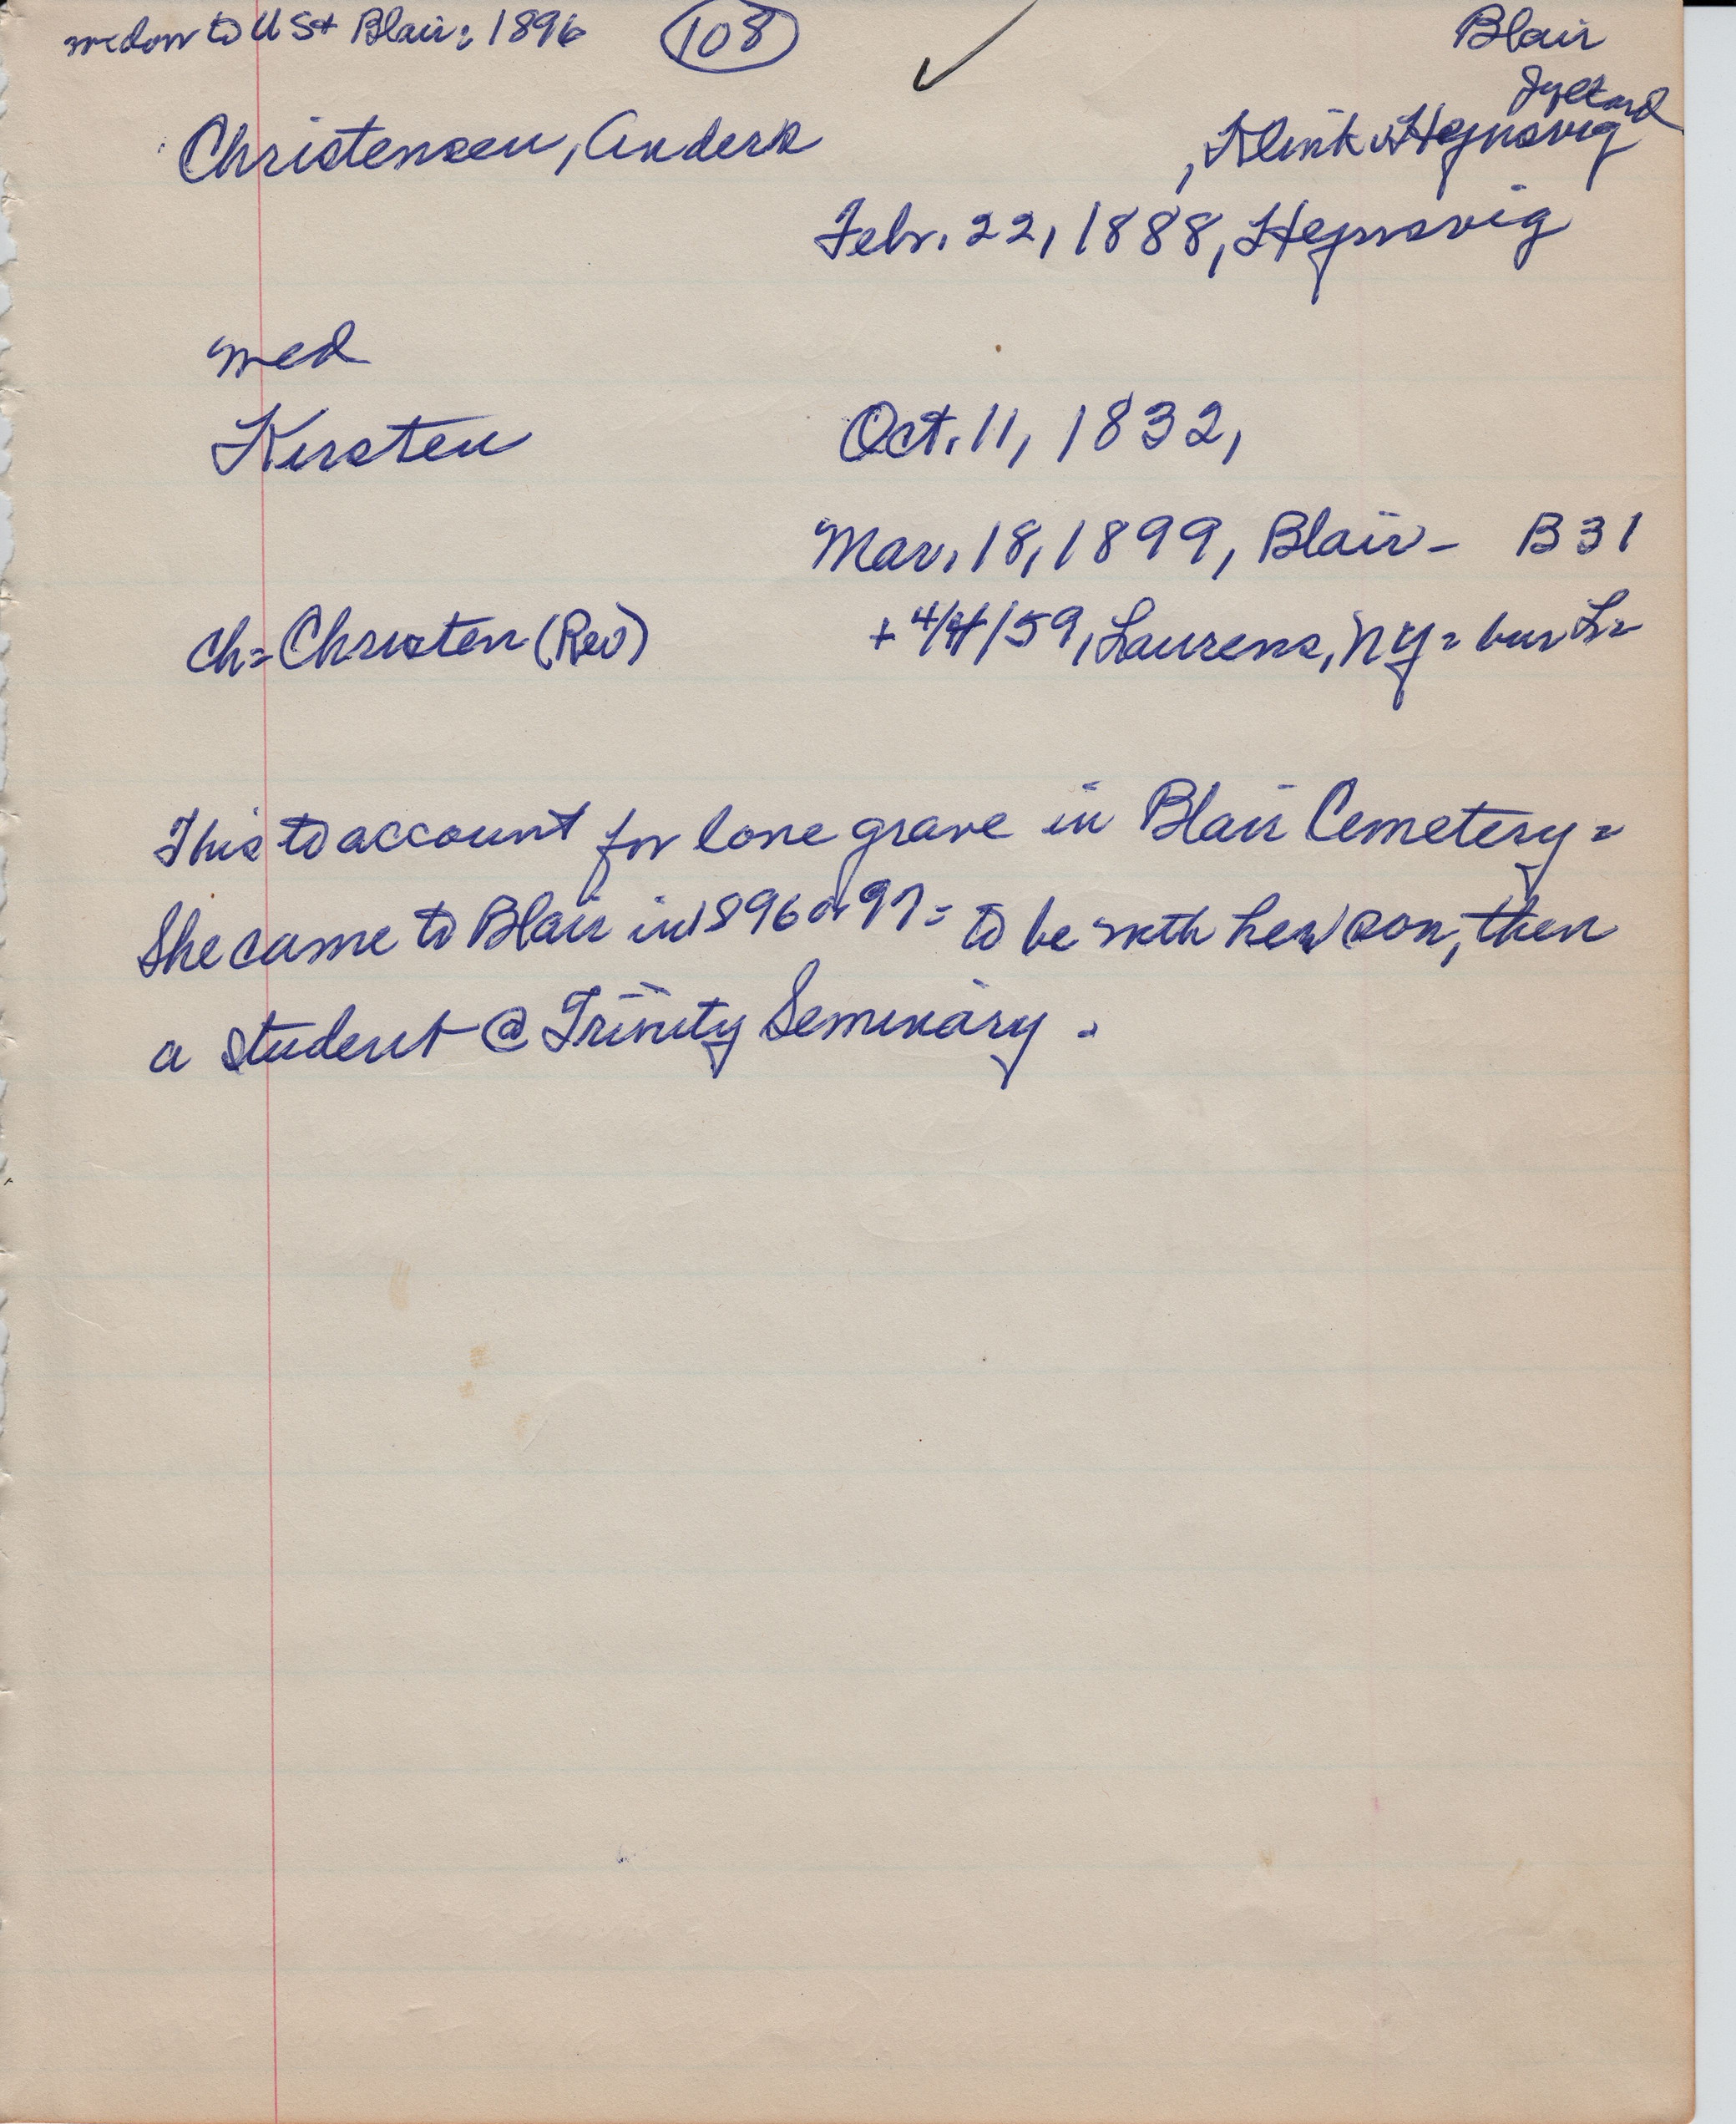 wedow to US + Blair: 1896 108 Blair
Jylland
Christensen, Anders , Klink v Hejnsvig
Febr. 22, 1888, Hejnsvig
med
Kirsten Oct. 11, 1832,
Mar. 18, 1899, Blair - B 31
ch= Christen (Rev) + 4/4/59, Laurens, NY = bur L=
This to account for lone grave in Blair Cemetery =
She came to Blair in 1896 or 97 = to be with her son, then
a student @ Trinity Seminary =